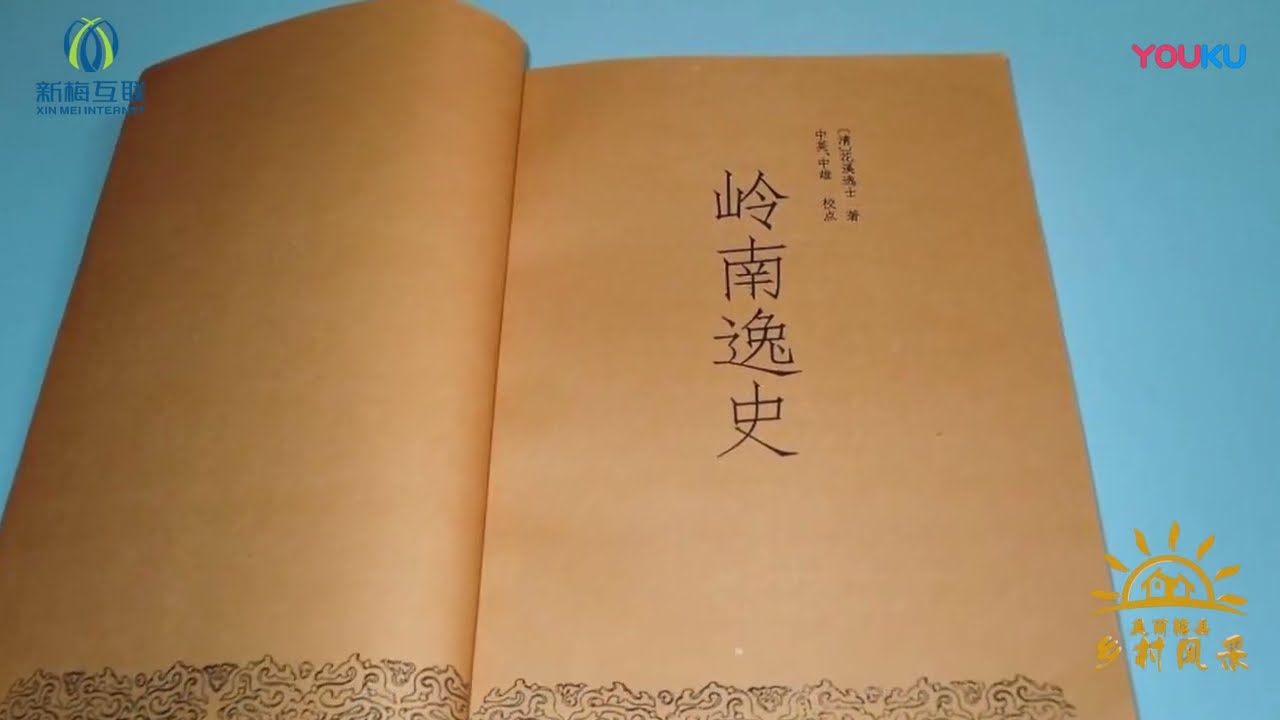 新梅互联
XIN MEI INTERNET
YOUKU
[清]花溪逸士 著
中英、中雄 校点
岭南逸史
乡村风采